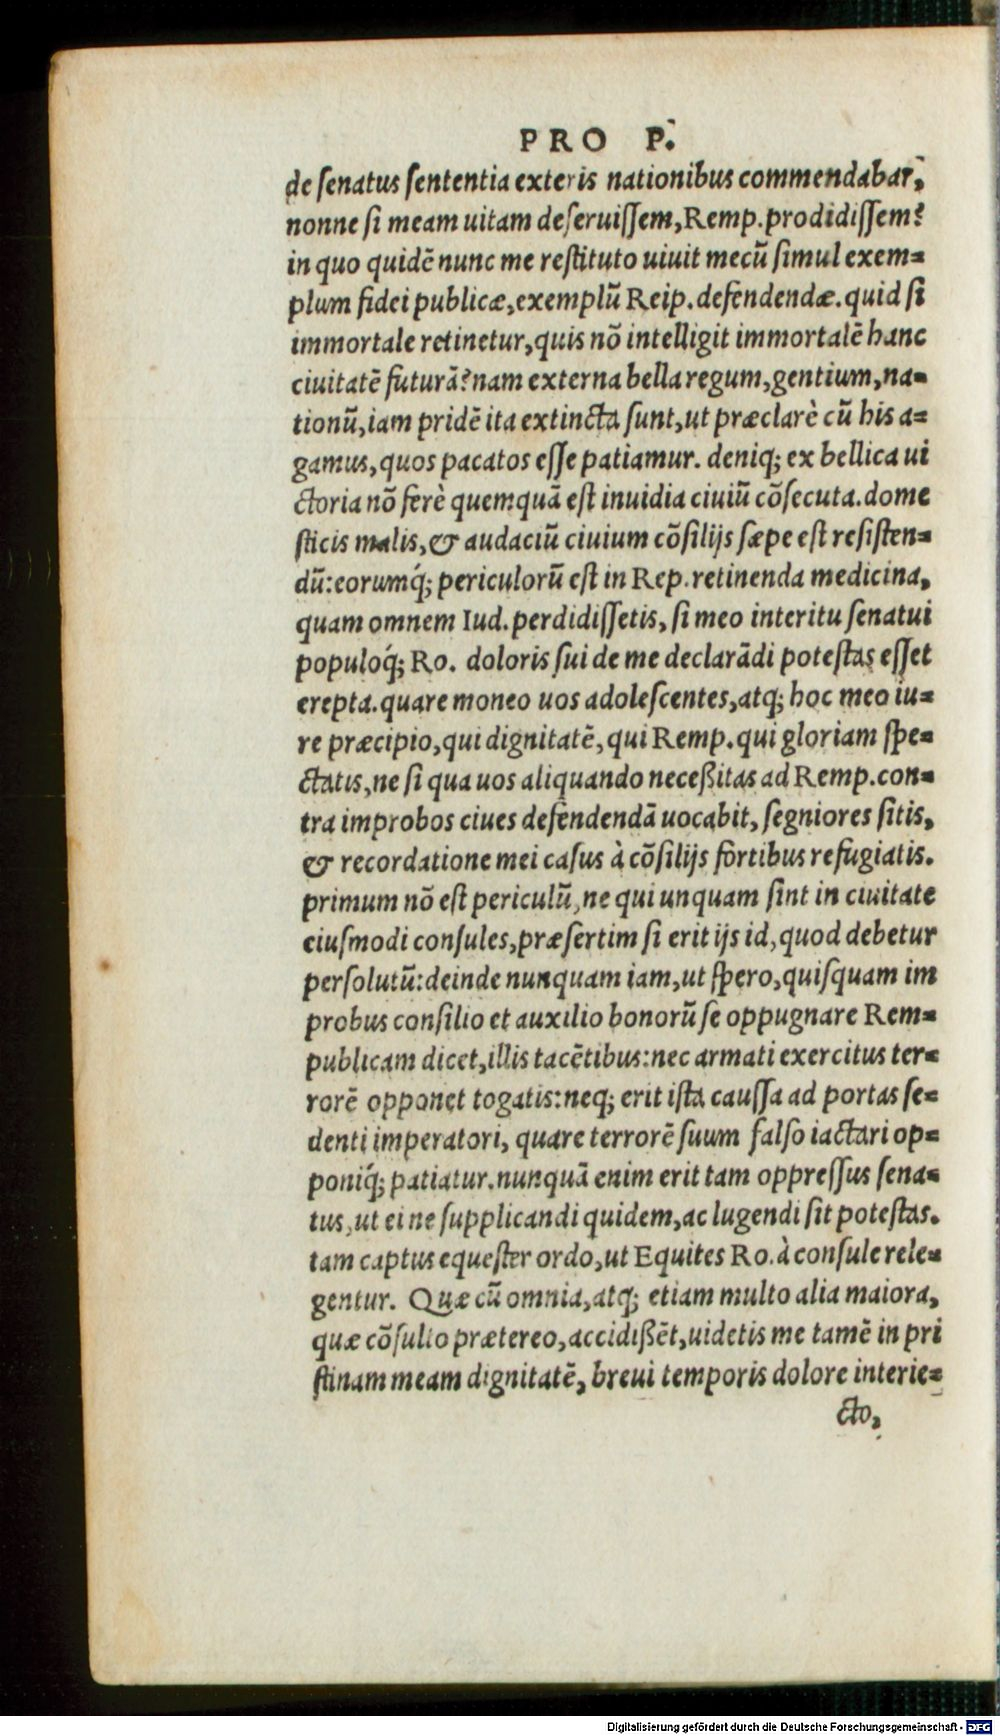 PRO P.
de ſenatus ſententia exteris nationibus commendabar,
nonne ſi meam uitam deſeruiſſem, Remp. prodidiſſem?
in quo quidē nunc me reſtituto uiuit mecū ſimul exem=
plum fidei publicæ, exemplū Reip. defendendæ. quid ſi
immortale retinetur, quis nō intelligit immortalē hanc
ciuitatē futurā? nam externa bella regum, gentium, na=
tionū, iam pridē ita extincta ſunt, ut præclarè cū his a=
gamus, quos pacatos eſſe patiamur. deniq; ex bellica ui
ctoria nō ferè quemquā eſt inuidia ciuiū cōſecuta. dome
ſticis malis, & audaciū ciuium cōſilijs ſæpe eſt reſiſten=
dū: eorumq́; periculorū eſt in Rep. retinenda medicina,
quam omnem Iud. perdidiſſetis, ſi meo interitu ſenatui
populoq́; Ro. doloris ſui de me declarādi poteſtas eſſet
erepta. quare moneo uos adoleſcentes, atq; hoc meo iu=
re præcipio, qui dignitatē, qui Remp. qui gloriam ſpe=
ctatis, ne ſi qua uos aliquando neceßitas ad Remp. con=
tra improbos ciues defendendā uocabit, ſegniores ſitis,
& recordatione mei caſus à cōſilijs fortibus refugiatis.
primum nō eſt periculū, ne qui unquam ſint in ciuitate
eiuſmodi conſules, præſertim ſi erit ijs id, quod debetur
perſolutū: deinde nunquam iam, ut ſpero, quiſquam im
probus conſilio et auxilio bonorū ſe oppugnare Rem=
publicam dicet, illis tacētibus: nec armati exercitus ter=
rorē opponet togatis: neq; erit iſta cauſſa ad portas ſe=
denti imperatori, quare terrorē ſuum falſo iactari op=
poniq́; patiatur. nunquā enim erit tam oppreſſus ſena=
tus, ut ei ne ſupplicandi quidem, ac lugendi ſit poteſtas.
tam captus equeſter ordo, ut Equites Ro. à conſule rele=
gentur. Quæ cū omnia, atq; etiam multo alia maiora,
quæ cōſulto prætereo, accidißēt, uidetis me tamē in pri
ſtinam meam dignitatē, breui temporis dolore interie=
cto,
Digitalisierung gefördert durch die Deutsche Forschungsgemeinschaft - DFG